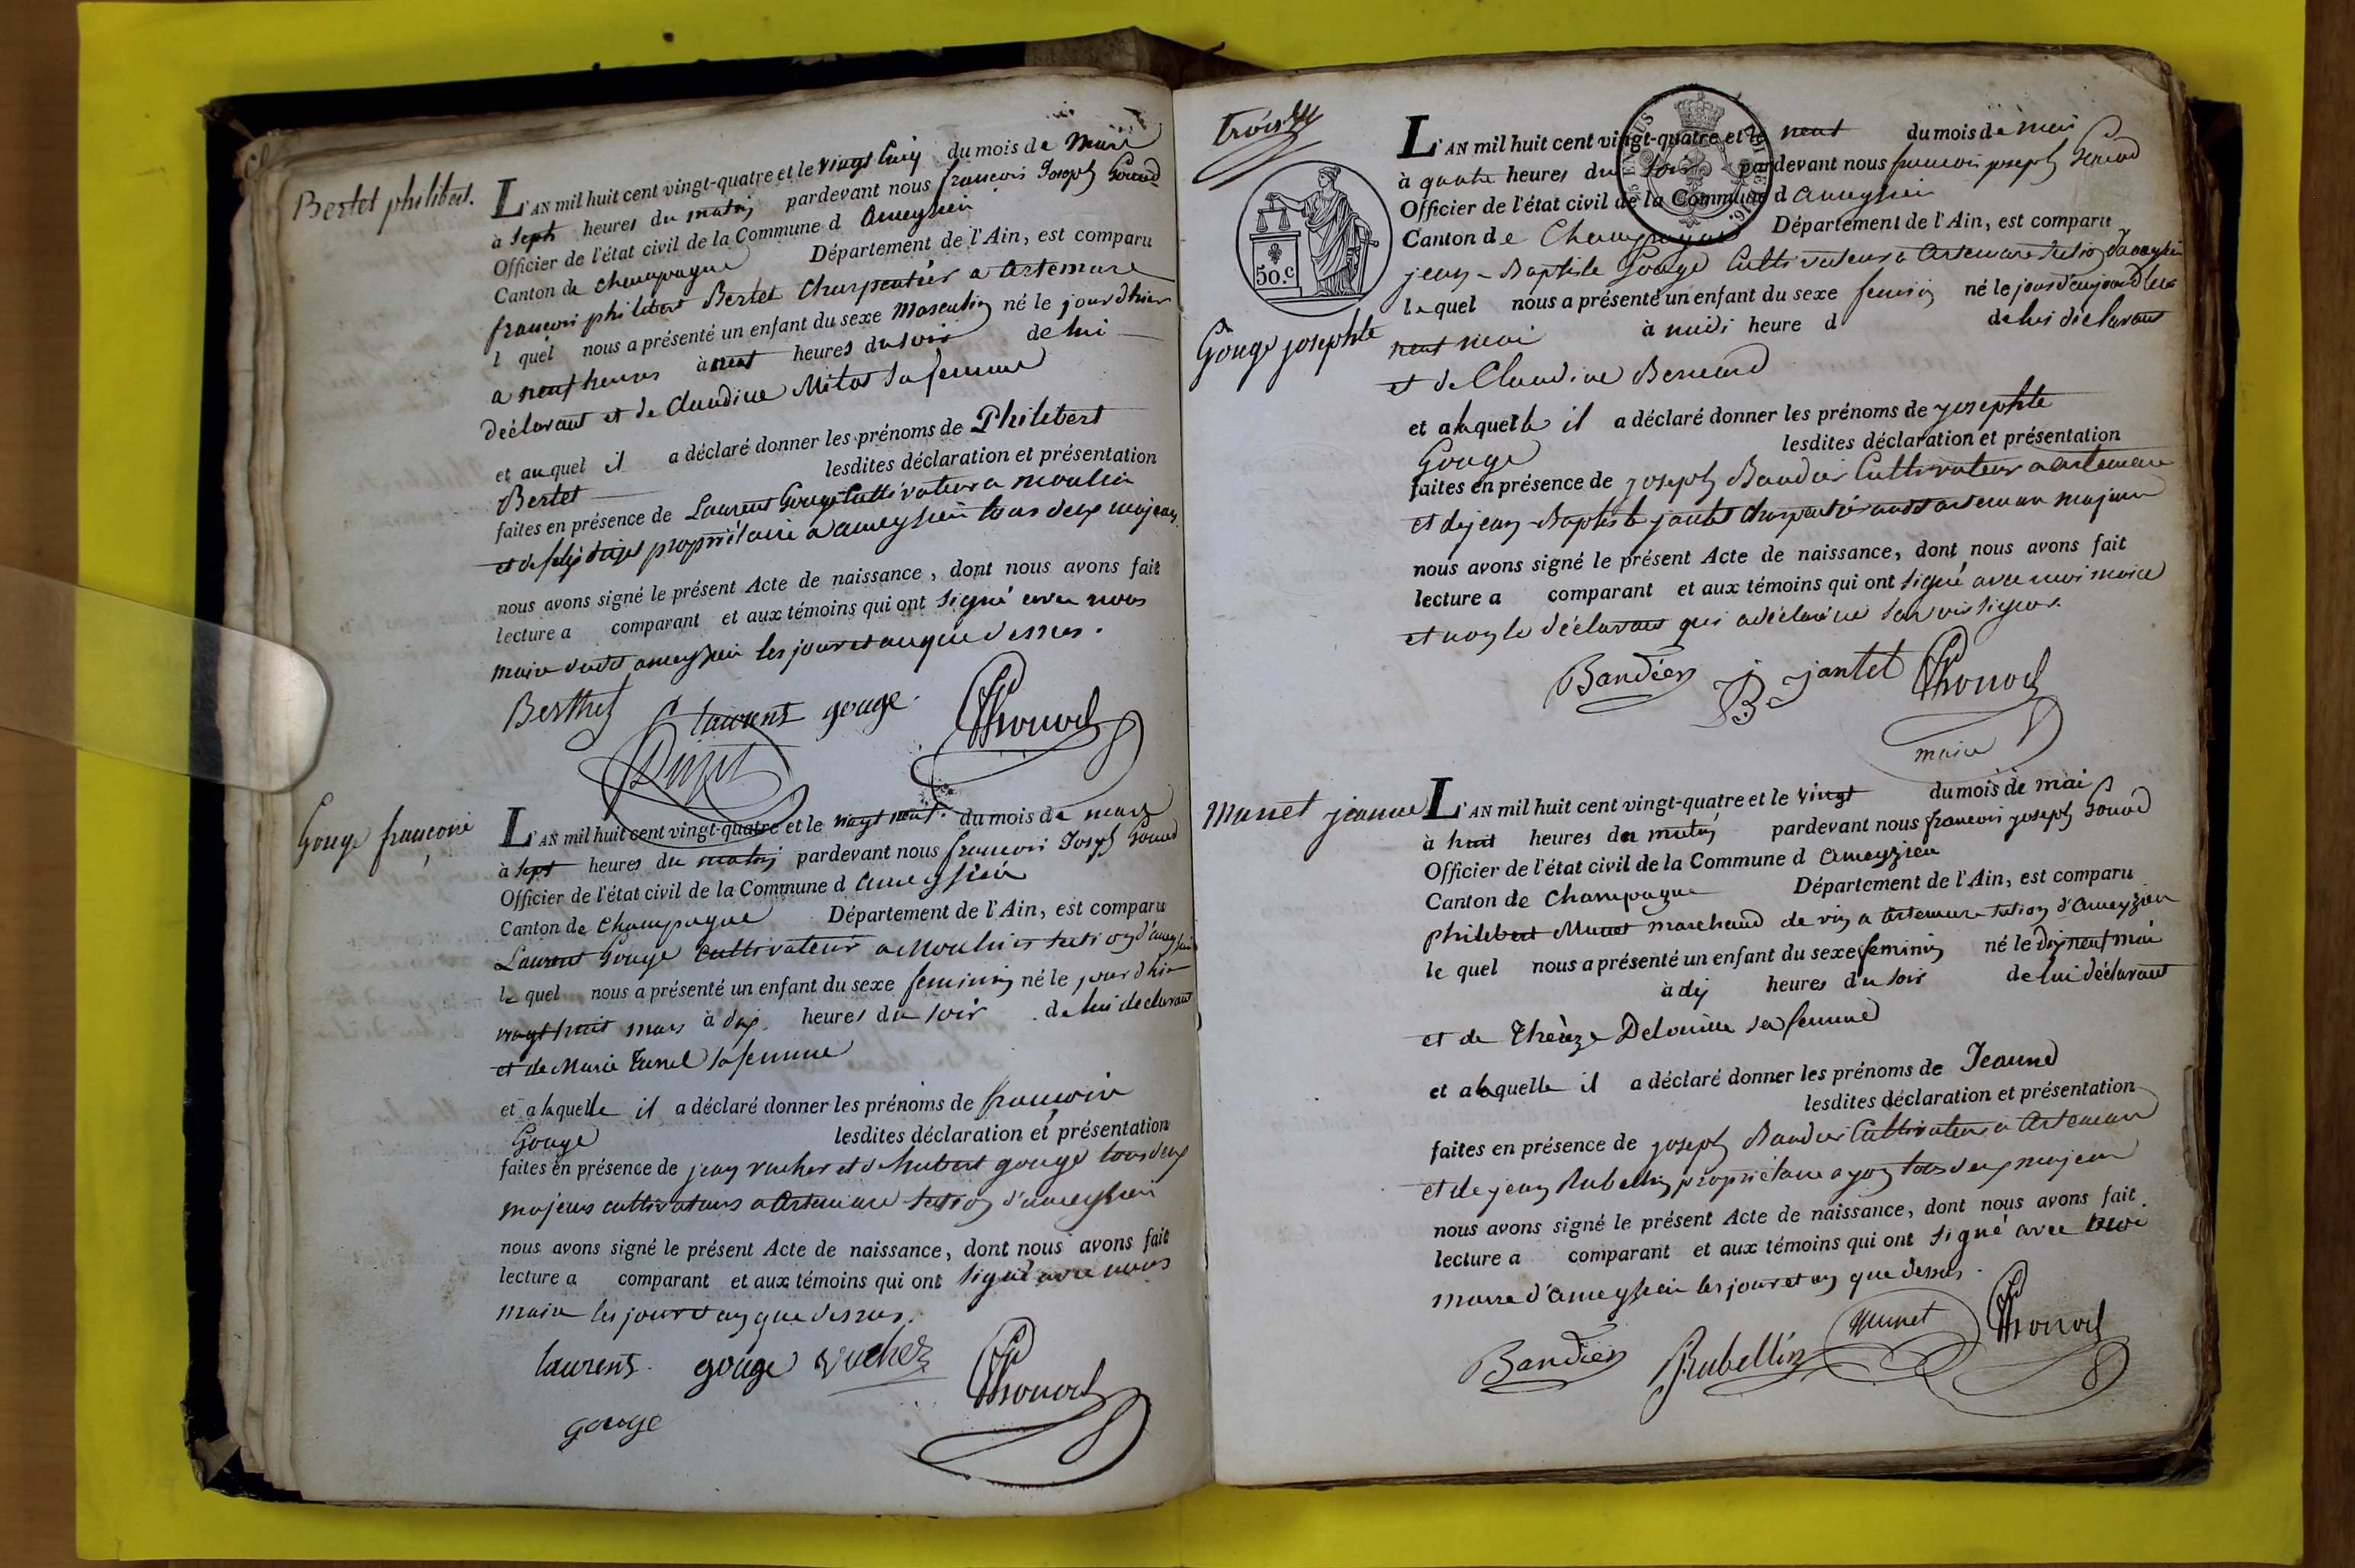 Bertet philibert.
L'AN mil huit cent vingt-quatre et le vingt cinq du mois de Mars
à sept heures du matin pardevant nous françois Joseph Gonod
Officier de l'état civil de la Commune d ameysieu
Canton de champagne Département de l'Ain, est comparu
françois philibert Bertet charpentier a artemare
l quel nous a présenté un enfant du sexe Masculin né le jour dhier
a neuf heures à neuf heures du soir de lui
déclarant et de claudine Mitos sa femme
et au quel il a déclaré donner les prénoms de Philibert
Bertet lesdites déclaration et présentation
faites en présence de Laurent Gouge Cultivateur a moulin
et de propriétaire a ameysieu tous deux majeurs
nous avons signé le présent Acte de naissance, dont nous avons fait
lecture a comparant et aux témoins qui ont signé avec nous
maire dudit ameysieu les jour et an que dessus.
Berthet laurent gouge.
Gouge françoise
L'AN mil huit cent vingt-quatre et le vingt neuf du mois de mars
à sept heures du matin pardevant nous françois Joseph Gonod
Officier de l'état civil de la Commune d ameysieu
Canton de champagne Département de l'Ain, est comparu
Laurent Gouge cultivateur a Moulin section d'ameysieu
le quel nous a présenté un enfant du sexe feminin né le jour dhier
vingt huit mars à dix heures du soir de lui declarant
et de Marie sa femme
et a laquelle il a déclaré donner les prénoms de françoise
Gouge lesdites déclaration et présentation
faites en présence de jean vucher et de hubert gouge tous deux
majeurs cultivateurs a artemare section d'ameysieu
nous avons signé le présent Acte de naissance, dont nous avons fait
lecture a comparant et aux témoins qui ont signé avec nous
maire les jour et an que dessus.
laurent gouge vucher
gouge
trois
50.c
L'AN mil huit cent vingt-quatre et le neuf du mois de mai
à quatre heures du soir pardevant nous françois joseph Gonod
Officier de l'état civil de la Commune d ameysieu
Canton de Champagne Département de l'Ain, est comparu
jean-Baptiste Gouge Cultivateur a artemare section dameysieu
le quel nous a présenté un enfant du sexe feminin né le jour d'aujourdhui
Gouge josephte
neuf mai à midi heure d de lui déclarant
et de Claudine Bernard
et a laquelle il a déclaré donner les prénoms de josephte
Gouge lesdites déclaration et présentation
faites en présence de joseph Bandier Cultivateur a artemare
et de jean-Baptiste jantet charpentier audit artemare majeurs
nous avons signé le présent Acte de naissance, dont nous avons fait
lecture a comparant et aux témoins qui ont signé avec moi maire
et non le déclarant qui a déclaré ne savoir signer.
Bandier j B jantet Gonod
maire
Munet jeanne
L'AN mil huit cent vingt-quatre et le vingt du mois de mai
à huit heures du matin pardevant nous françois joseph Gonod
Officier de l'état civil de la Commune d ameyzieu
Canton de Champagne Département de l'Ain, est comparu
philibert Munet marchand de vin a artemare section d'ameyzieu
le quel nous a présenté un enfant du sexe feminin né le dix neuf mai
à dix heures du soir de lui déclarant
et de Thérèze sa femme
et a laquelle il a déclaré donner les prénoms de Jeanne
lesdites déclaration et présentation
faites en présence de joseph Bandier Cultivateur a Artemare
et de jean Rubellin propriétaire a yon tous deux majeurs
nous avons signé le présent Acte de naissance, dont nous avons fait
lecture a comparant et aux témoins qui ont signé avec moi
maire d'ameysieu les jour et an que dessus.
Bandier Rubellin Munet Gonod